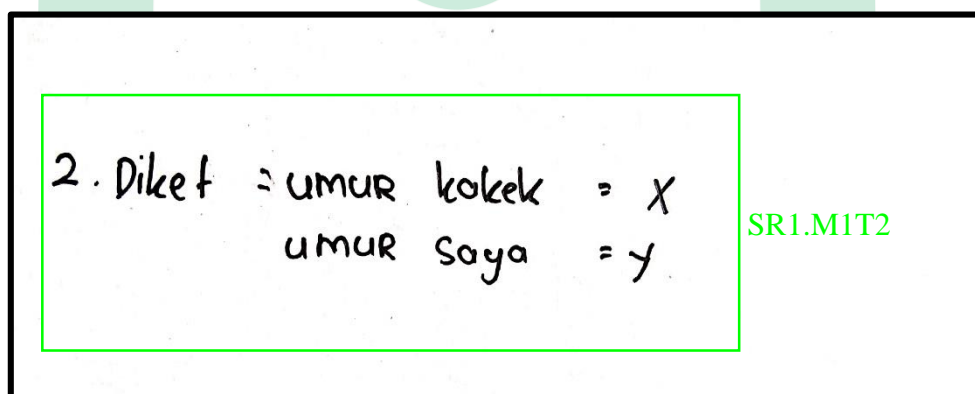 2. Diket = umur kakek = X
umur saya = y
SR1.M1T2